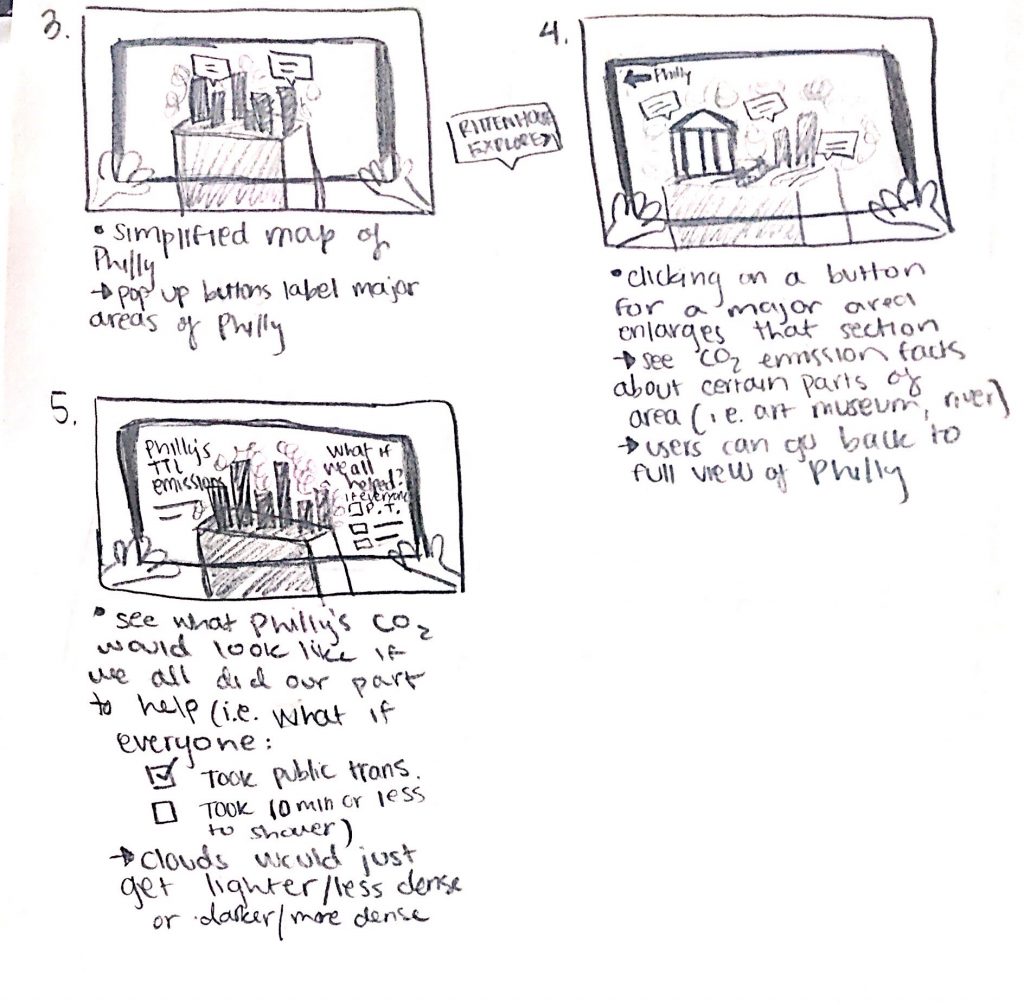 3.
• simplified map of
Philly
→ pop up buttons label major
areas of Philly
RITTENHOUSE
EXPLORE>
4.
← Philly
• clicking on a button
for a major area
enlarges that section
→ see CO₂ emission facts
about certain parts of
area (i.e. art museum, river)
→ users can go back to
full view of Philly
5.
Philly's
TTL
emissions
what if
we all
helped?
if everyone
☐ P.T.
• see what Philly's CO₂
would look like if
we all did our part
to help (i.e. what if
everyone:
☑ Took public trans.
☐ Took 10 min or less
to shower)
→ clouds would just
get lighter/less dense
or darker/more dense